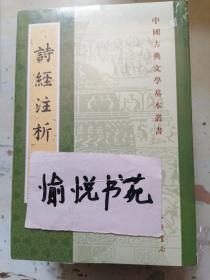 中國古典文學基本叢書
詩經注析
愉悦书苑